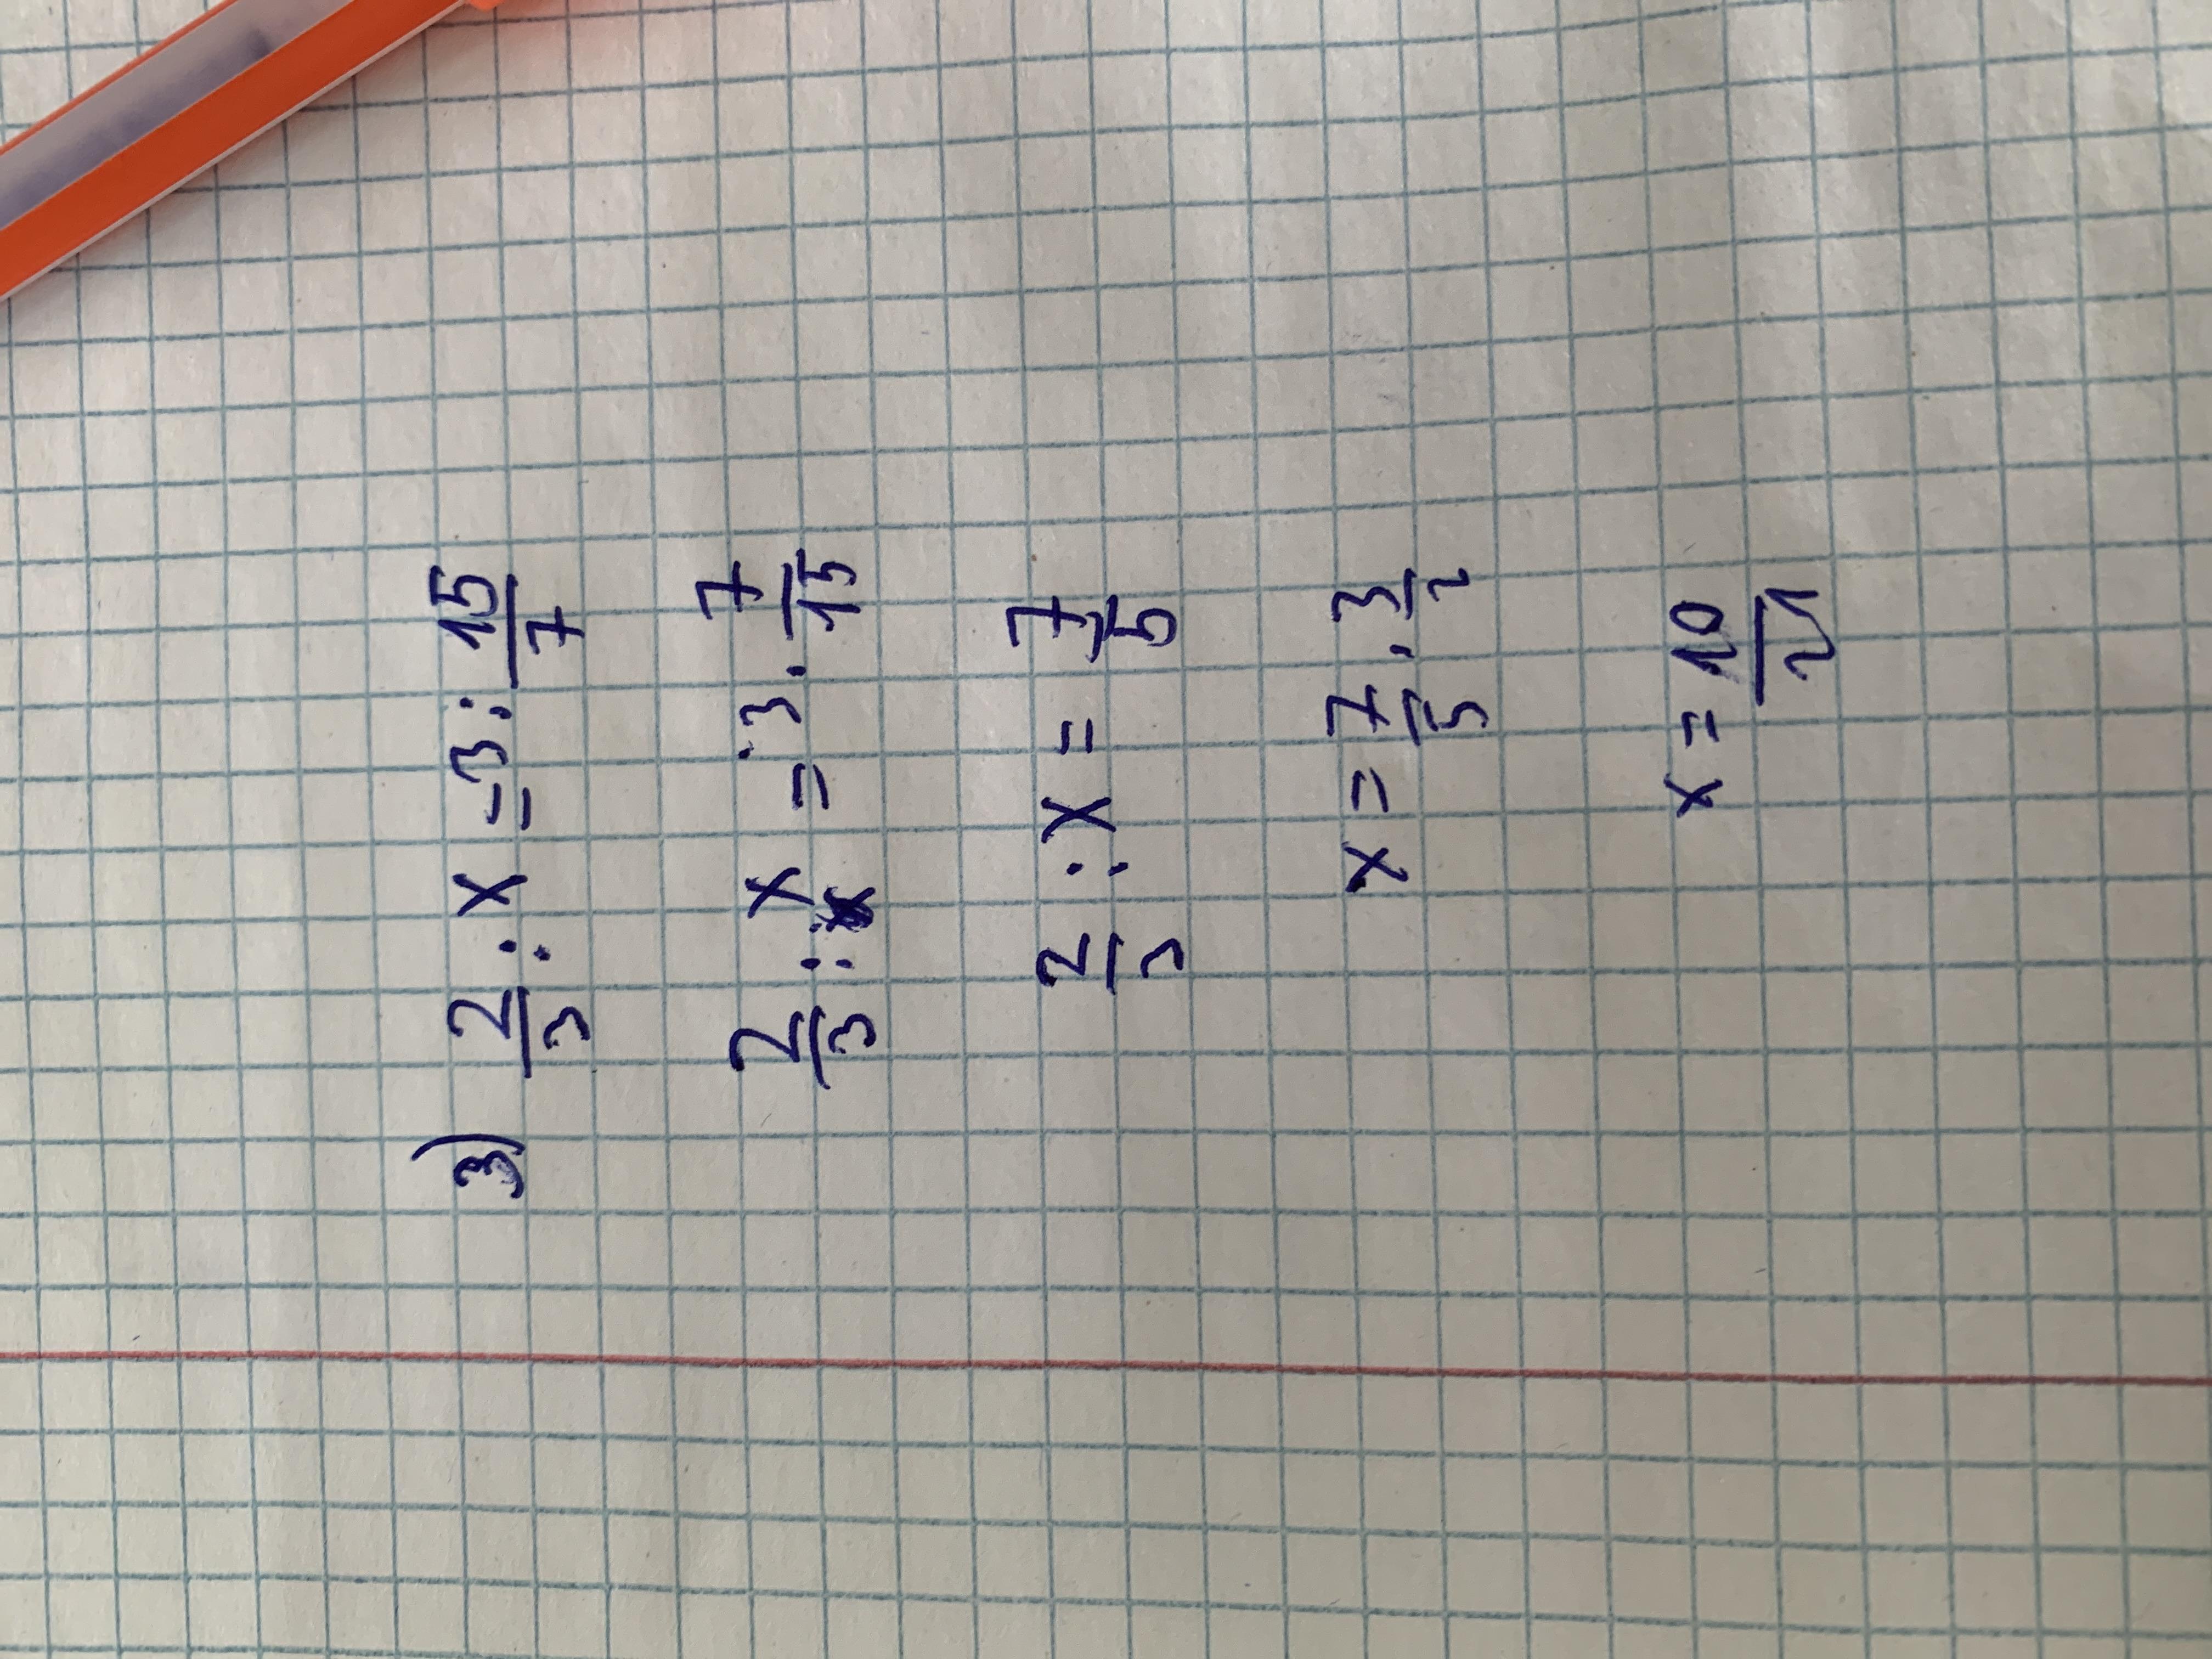 3) 2/3 : x = 3 : 15/7
2/3 : x = 3 · 7/15
2/3 : x = 7/5
x = 7/5 · 3/2
x = 10/21